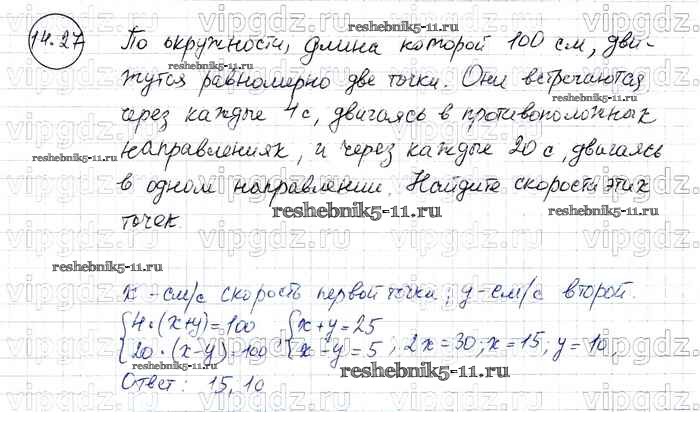 14.27 По окружности, длина которой 100 см, дви-
жутся равномерно две точки. Они встречаются
через каждые 4 с, двигаясь в противоположных
направлениях, и через каждые 20 с, двигаясь
в одном направлении. Найдите скорости этих
точек.
x - см/с скорость первой точки; y - см/с второй.
{4·(x+y)=100 {x+y=25
{20·(x-y)=100 {x-y=5 ; 2x=30; x=15, y=10,
Ответ: 15, 10
reshebnik5-11.ru
vipgdz.ru